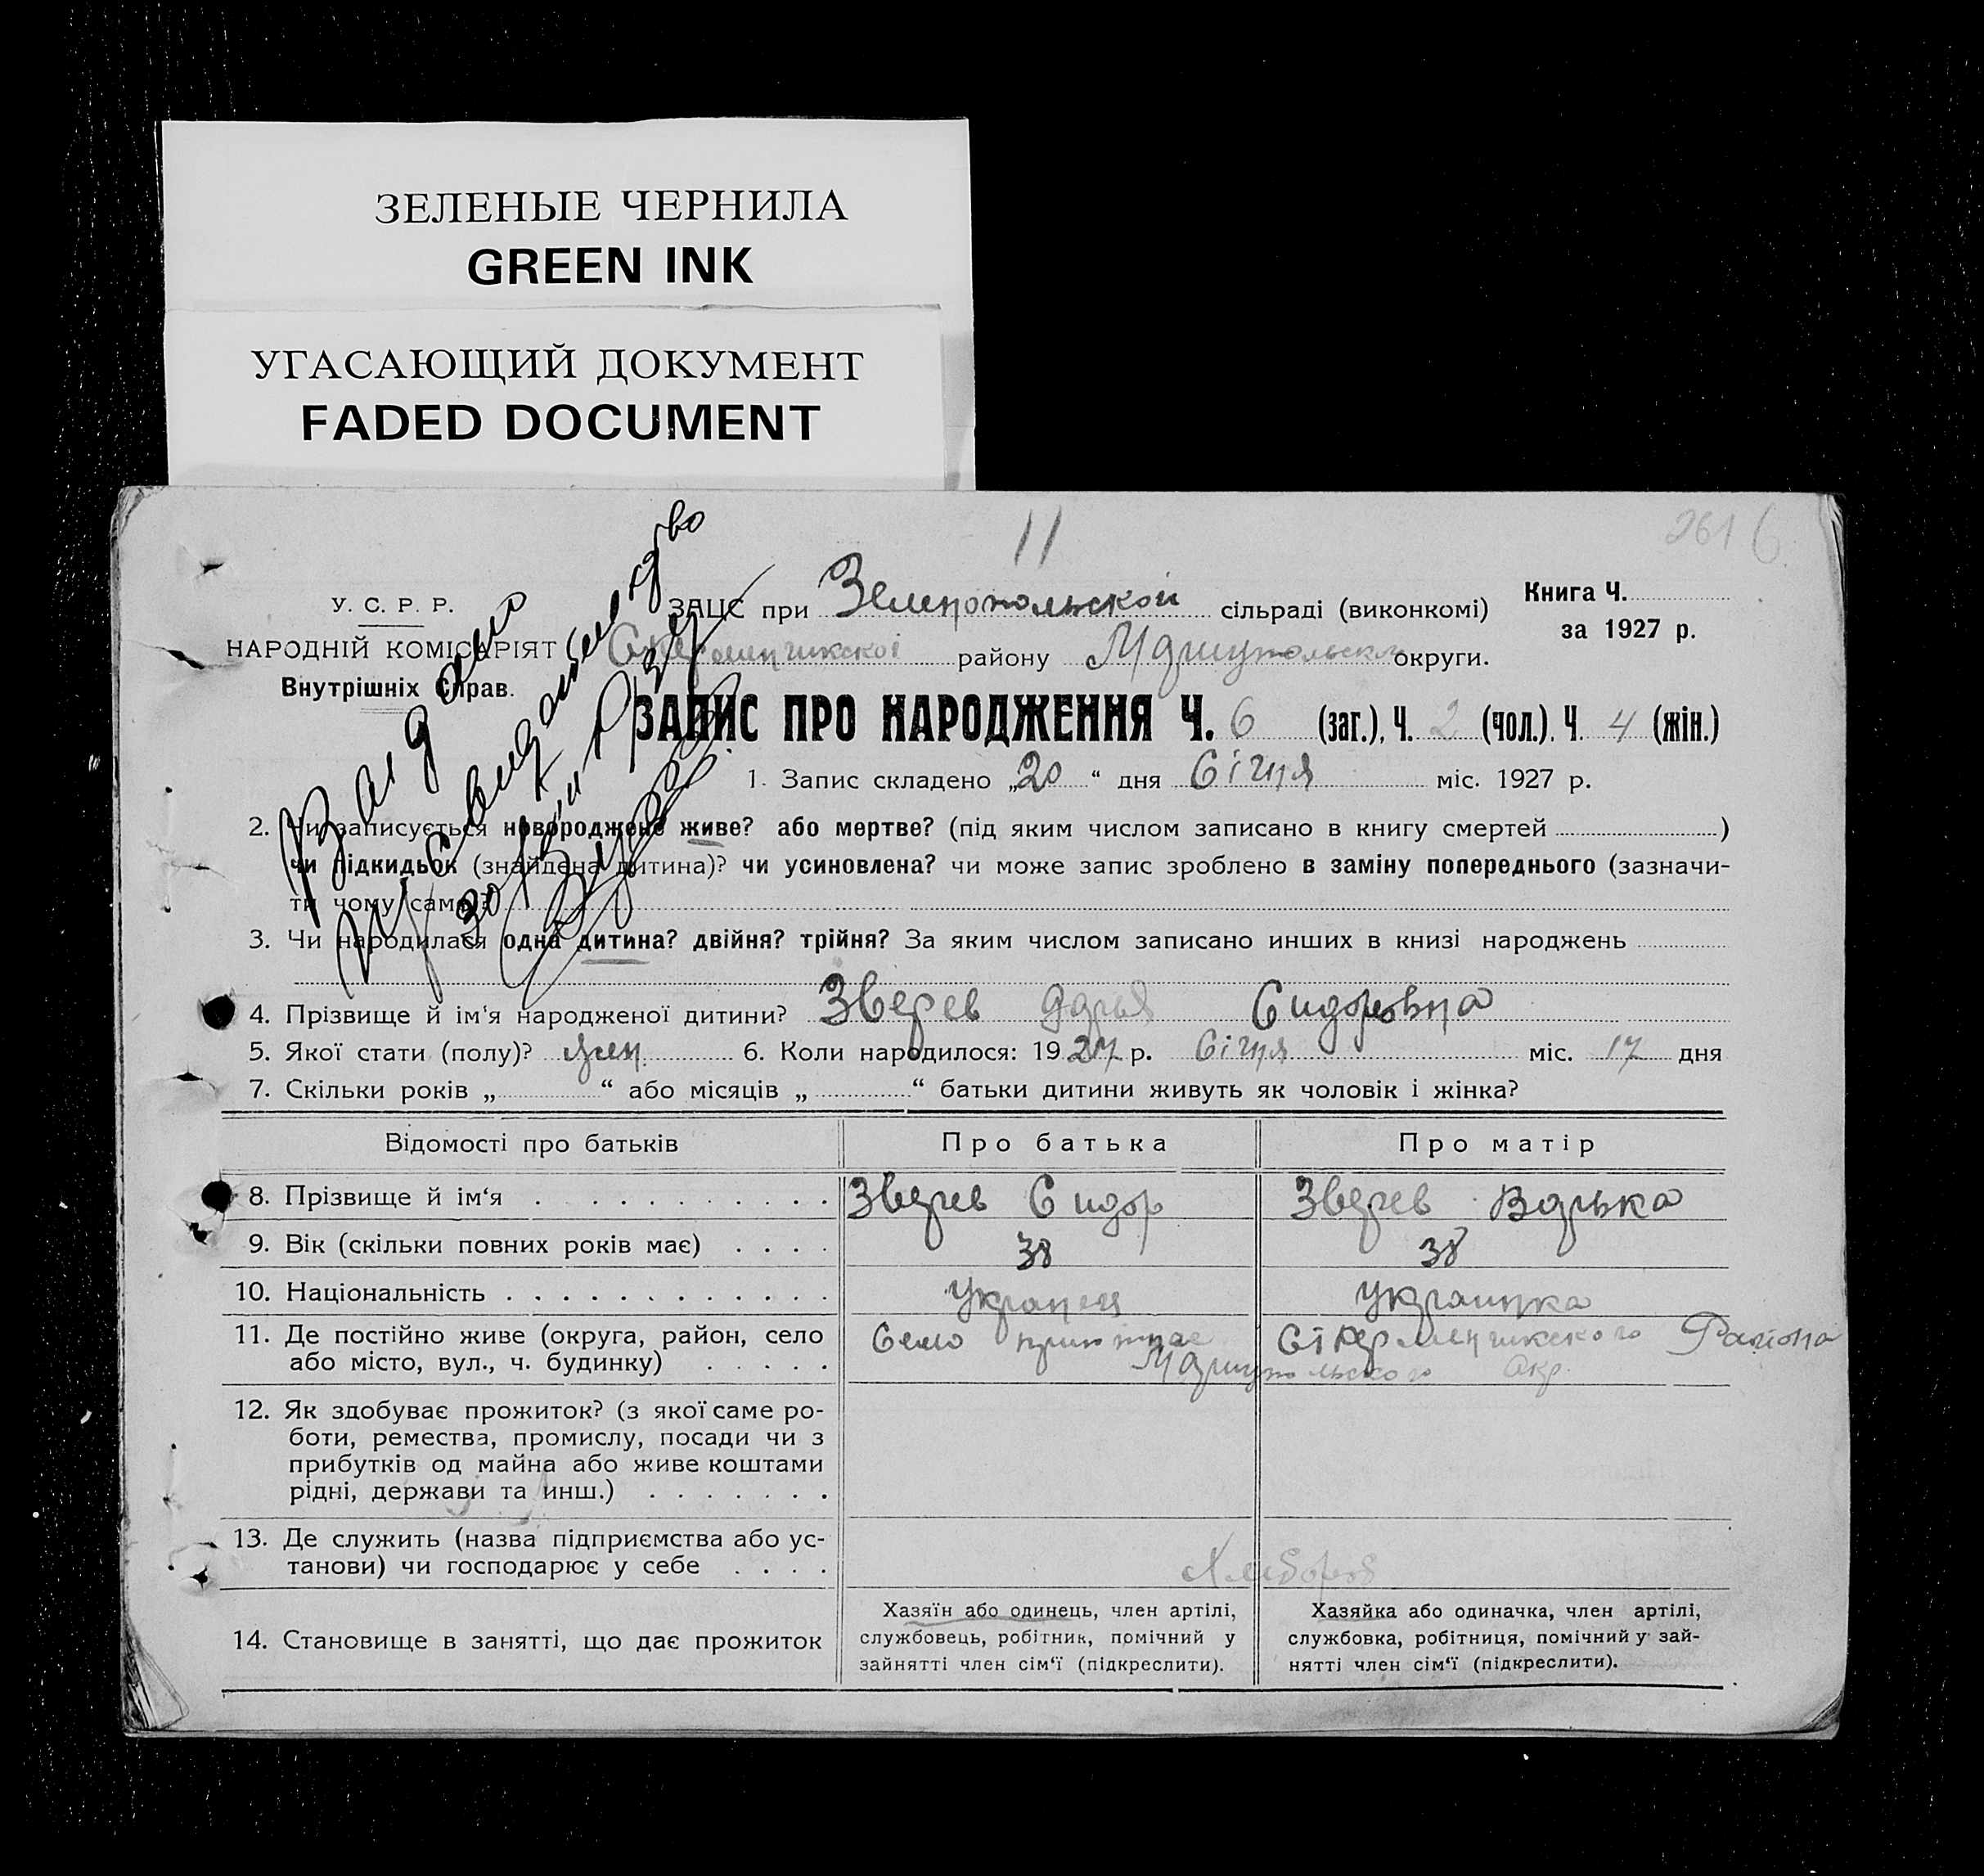 ЗЕЛЕНЫЕ ЧЕРНИЛА
GREEN INK
УГАСАЮЩИЙ ДОКУМЕНТ
FADED DOCUMENT
11
261 6
У. С. Р. Р.
НАРОДНІЙ КОМІСАРІЯТ
Внутрішніх Справ.
ЗАЦС при Зеленопольской сільраді (виконкомі)
району Мариупольской округи.
Книга Ч.
за 1927 р.
Видано
свидетельство
ЗАПИС ПРО НАРОДЖЕННЯ Ч. 6 (заг.), Ч. 2 (чол.), Ч. 4 (жін.)
1. Запис складено „20“ дня Січня міс. 1927 р.
2. Чи записується новороджене живе? або мертве? (під яким числом записано в книгу смертей )
чи підкидьок (знайдена дитина)? чи усиновлена? чи може запис зроблено в заміну попереднього (зазначи-
ти чому саме)?
3. Чи народилася одна дитина? двійня? трійня? За яким числом записано инших в книзі народжень
4. Прізвище й ім'я народженої дитини? Зверев Дарья Сидоровна
5. Якої стати (полу)? жен. 6. Коли народилося: 1927 р. Січня міс. 17 дня
7. Скільки років „ “ або місяців „ “ батьки дитини живуть як чоловік і жінка?
Відомості про батьків Про батька Про матір
8. Прізвище й ім‘я Зверев Сидор Зверев Варька
9. Вік (скільки повних років має) 38 38
10. Національність Украпец Украинка
11. Де постійно живе (округа, район, село
або місто, вул., ч. будинку)
Село Района
Мариупольского Окр.
12. Як здобуває прожиток? (з якої саме ро-
боти, ремества, промислу, посади чи з
прибутків од майна або живе коштами
рідні, держави та инш.)
13. Де служить (назва підприємства або ус-
танови) чи господарює у себе
Хлебороб
14. Становище в занятті, що дає прожиток
Хазяїн або одинець, член артілі,
службовець, робітник, помічний у
зайнятті член сім‘ї (підкреслити).
Хазяйка або одиначка, член артілі,
службовка, робітниця, помічний у зай-
нятті член сім‘ї (підкреслити).